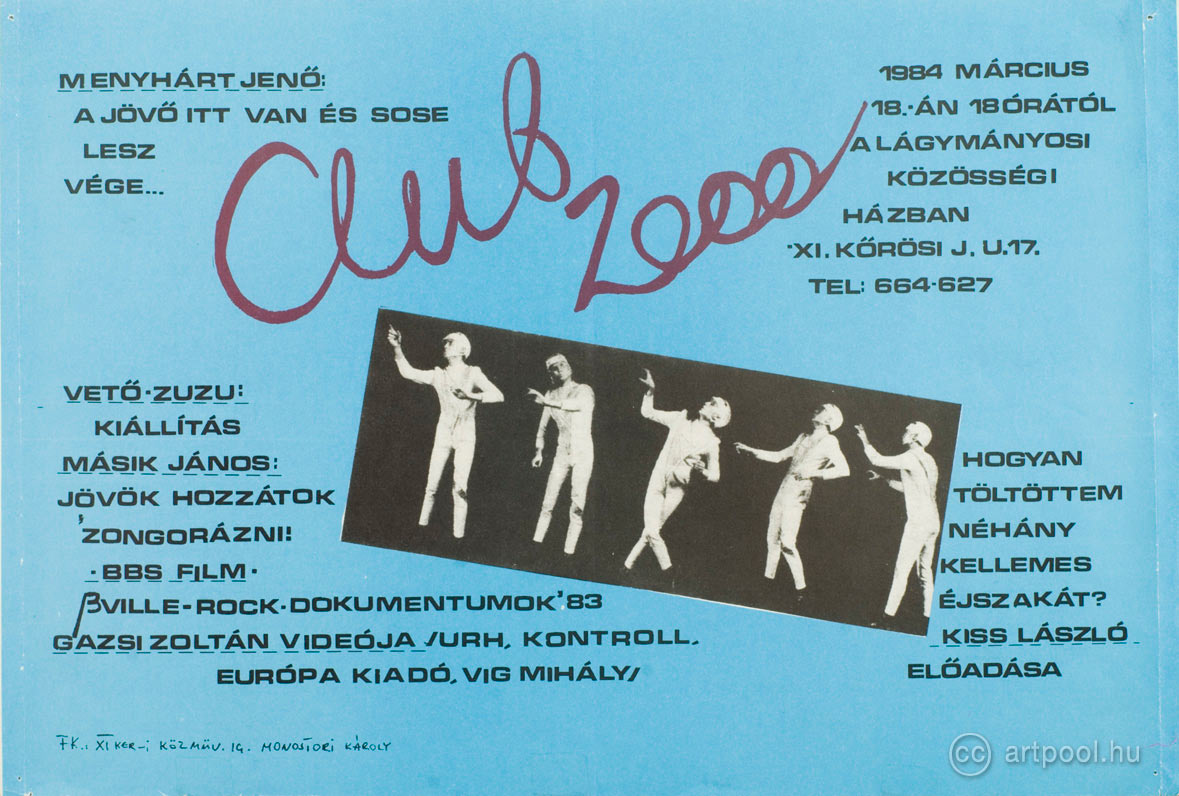 MENYHÁRT JENŐ:
A JÖVŐ ITT VAN ÉS SOSE
LESZ
VÉGE...
Club 2000
1984 MÁRCIUS
18.-ÁN 18 ÓRÁTÓL
A LÁGYMÁNYOSI
KÖZÖSSÉGI
HÁZBAN
XI. KŐRÖSI J. U.17.
TEL: 664-627
VETŐ-ZUZU:
KIÁLLÍTÁS
MÁSIK JÁNOS:
JÖVÖK HOZZÁTOK
ZONGORÁZNI!
·BBS FILM·
βVILLE-ROCK-DOKUMENTUMOK'83
GAZSI ZOLTÁN VIDEÓJA /URH, KONTROLL,
EURÓPA KIADÓ, VIG MIHÁLY/
HOGYAN
TÖLTÖTTEM
NÉHÁNY
KELLEMES
ÉJSZAKÁT?
KISS LÁSZLÓ
ELŐADÁSA
FK.: XI KER-i KÖZMŰV. IG. MONOSTORI KÁROLY
cc artpool.hu